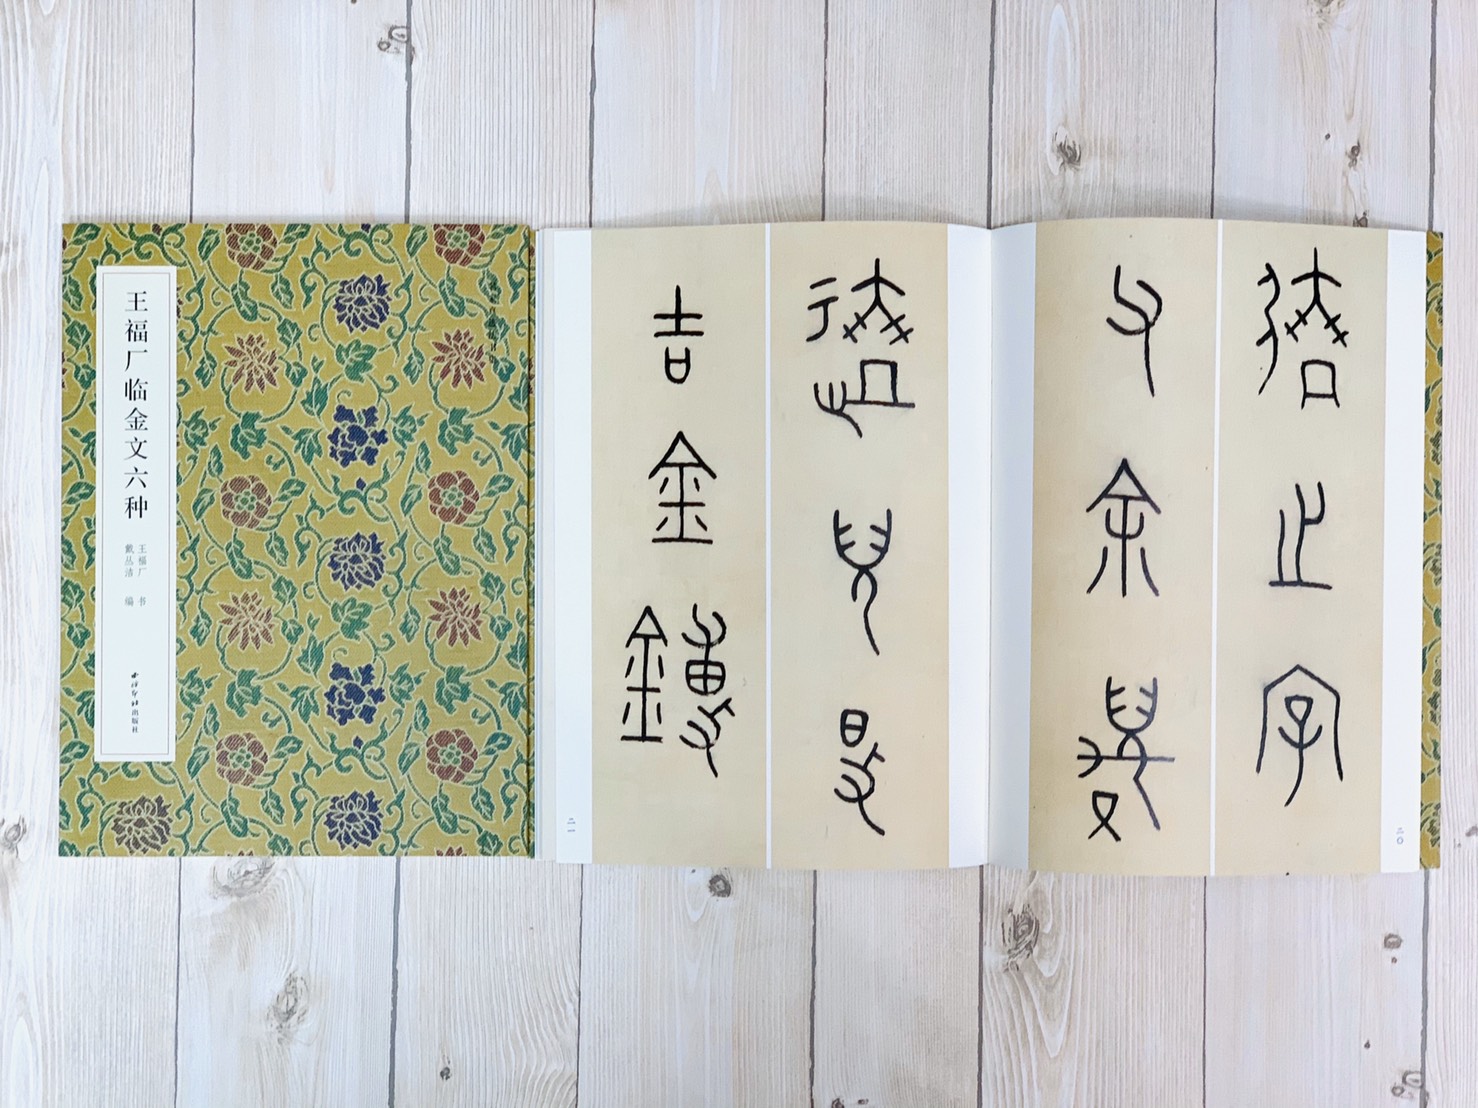 王福厂临金文六种
王福厂 书
戴丛洁 编
西泠印社出版社
之字
父余
兒得
吉金鎛
二〇
二一